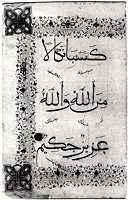 كسبا نكالا
من الله والله
عزيز حكيم